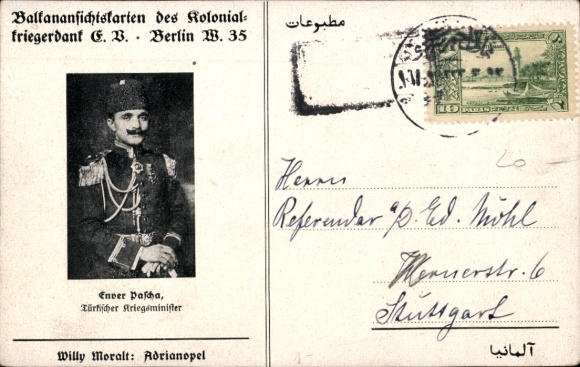 Balkanansichtskarten des Kolonial-
kriegerdank E. V. · Berlin W. 35
Enver Pascha,
Türkischer Kriegsminister
Willy Moralt: Adrianopel
مطبوعات
10
Herrn
Referendar a/D. Ed. Mühl
Wernerstr. 6
Stuttgart
آلمانيا